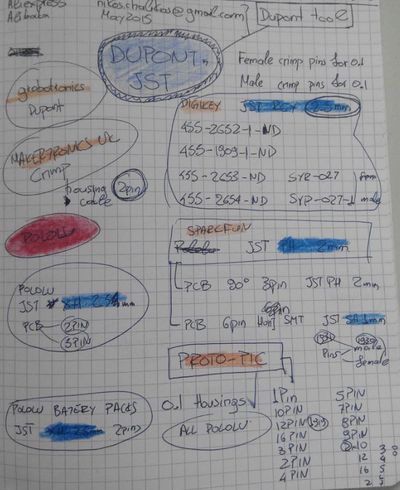 Aliexpress
Alibaba
nikos.chalikias@gmail.com
May 2015
Dupont tool
DUPONT
JST
Female crimp pins for 0.1
Male crimp pins for 0.1
grobotronics
Dupont
DIGIKEY JST 2.5mm
455-2652-1-ND
455-1909-1-ND
455-2653-ND SYP-027 fem
455-2654-ND SYP-027-1 male
MAKERTRONICS UK
Crimp
housing
cable 2pin
POLOLU
SPARKFUN
JST PH 2mm
PCB 90° 3pin JST PH 2mm
PCB 6pin SMT JST SH 1mm
POLOLU
JST XH 2.5mm
PCB 2PIN
3PIN
Pins male
female
PROTO-PIC
0.1 Housings
ALL POLOLU
POLOLU BATERY PACKS
JST 2pins
1Pin 5PIN
10PIN 7PIN
12PIN 8PIN
16PIN 9PIN
3PIN 2x10
2PIN
4PIN